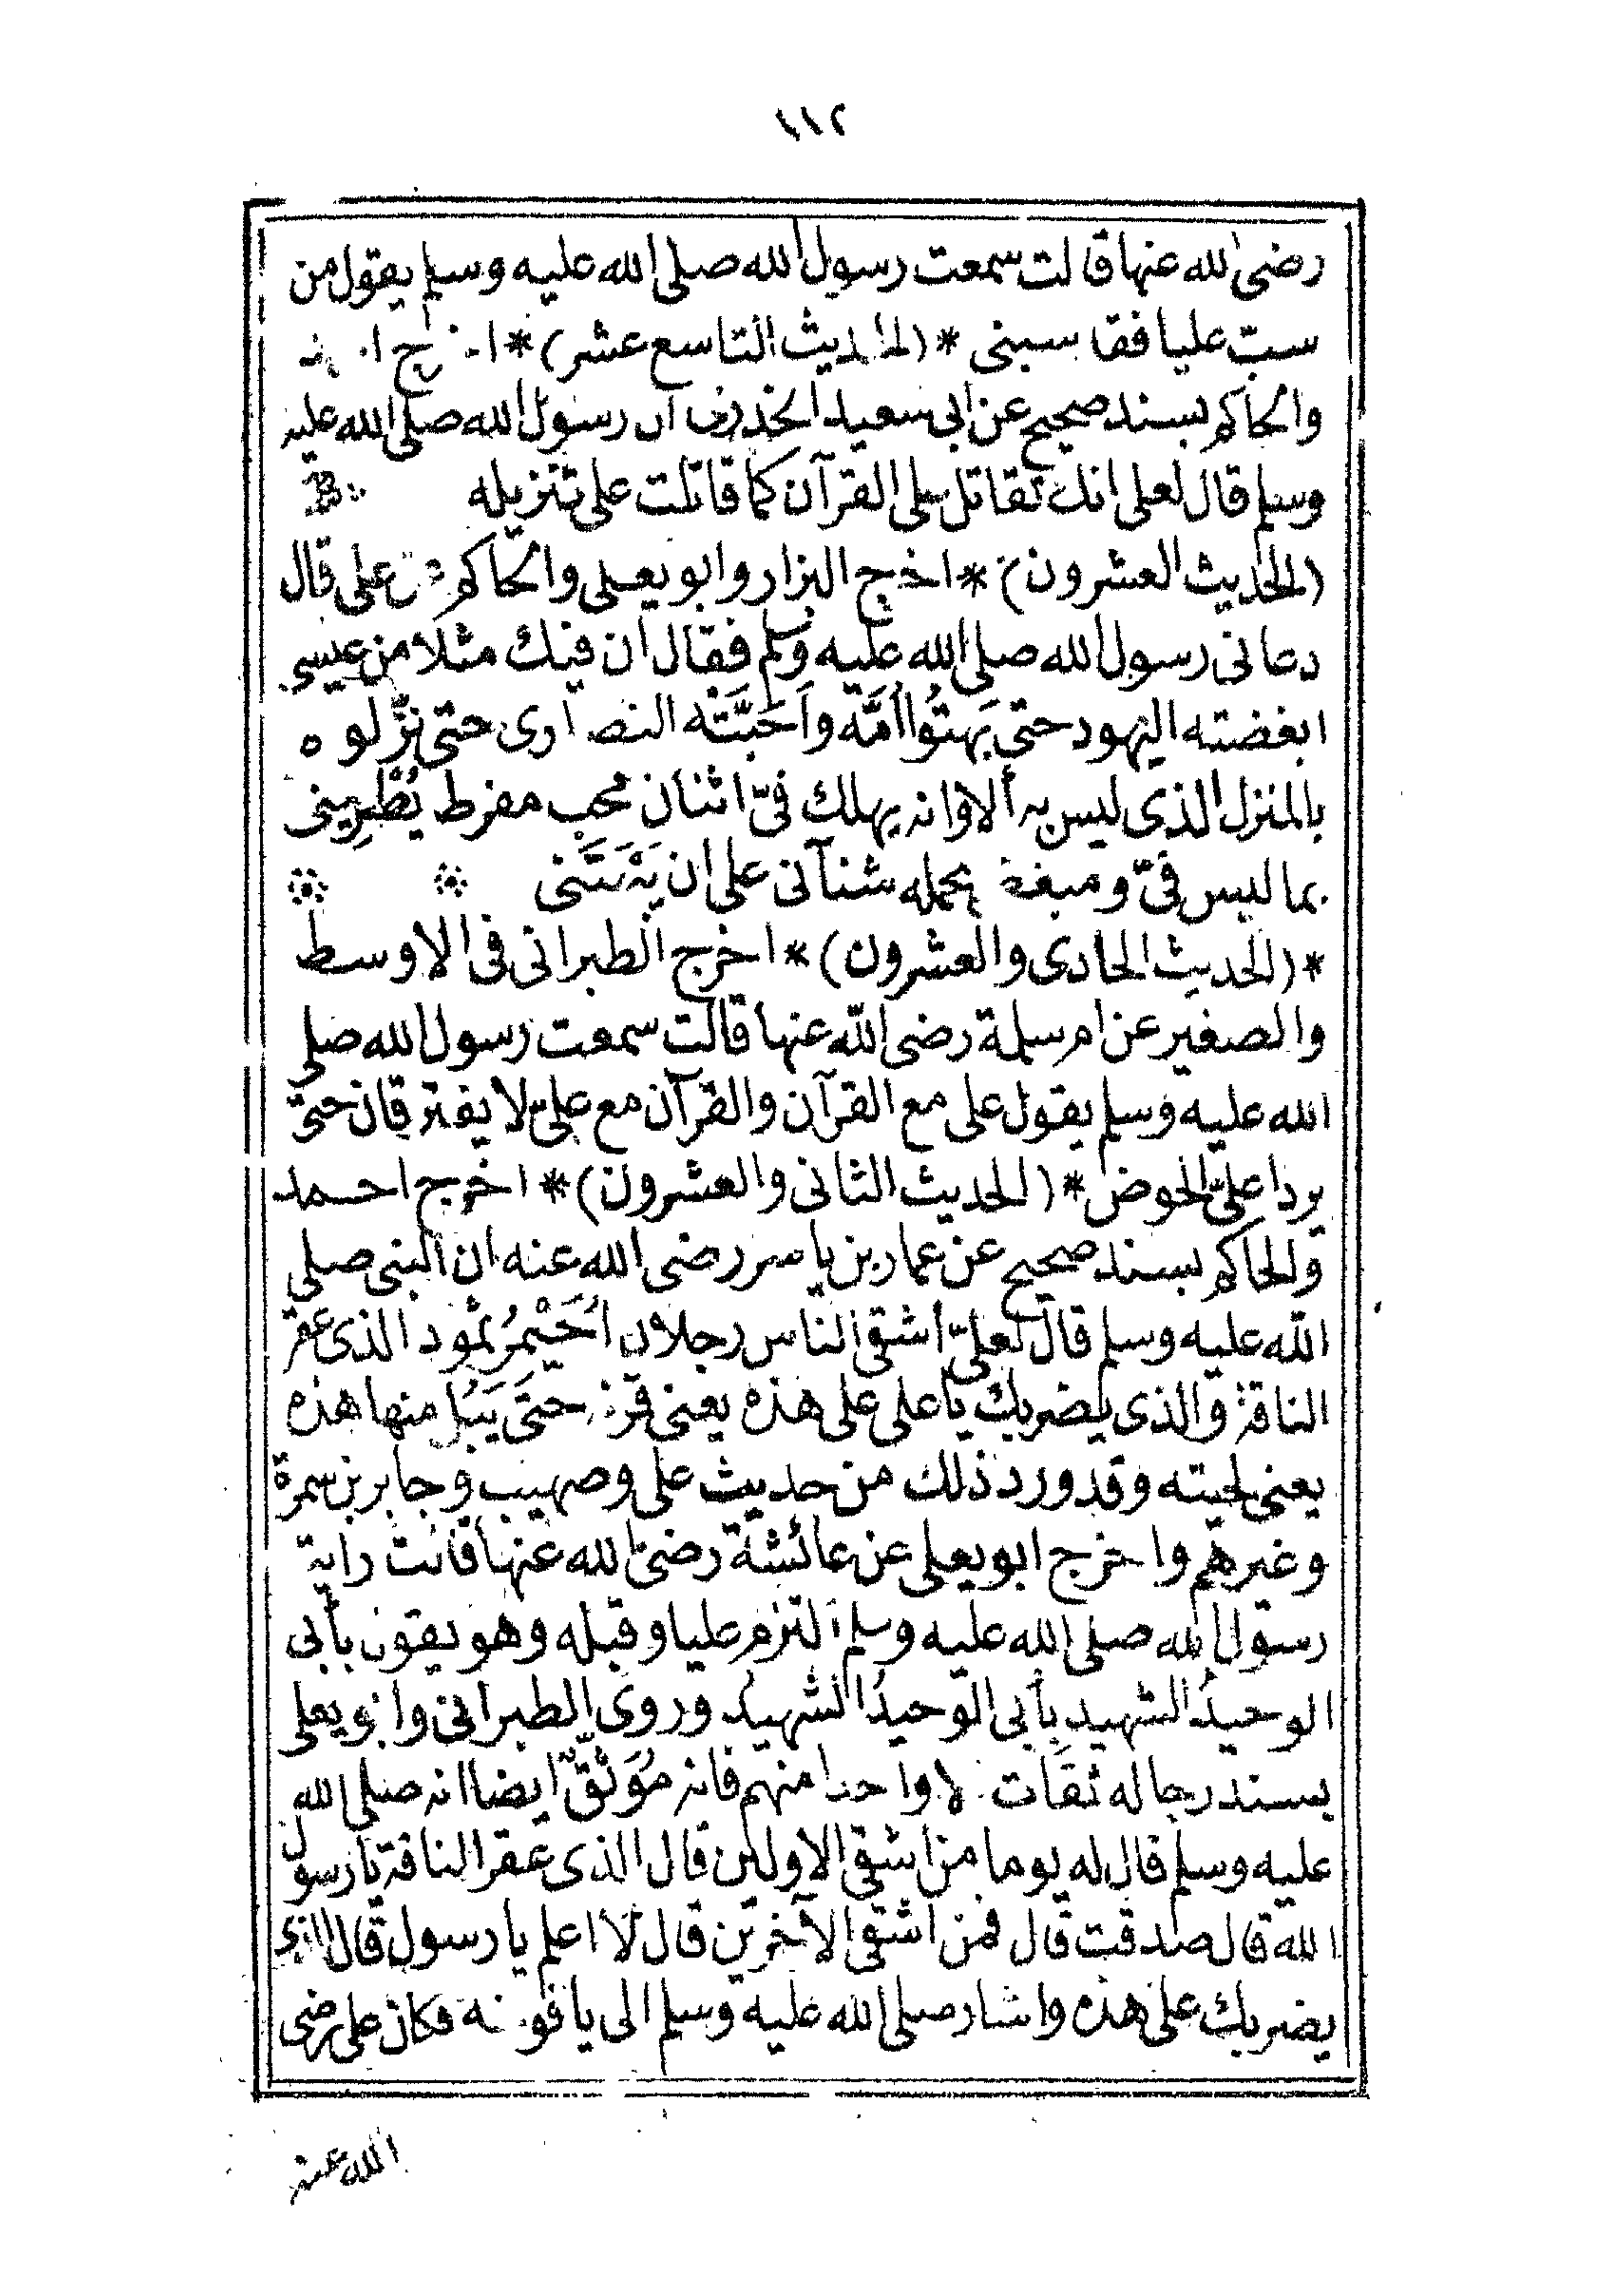 ١١٢
رضى الله عنها قالت سمعت رسول الله صلى الله عليه وسلم يقول من
سبّ عليا فقد سبنى * (الحديث التاسع عشر) *
والحاكم بسند صحيح عن ابى سعيد الخدرى ان رسول الله صلى الله عليه
وسلم قال لعلى انك تقاتل على القرآن كما قاتلت على تنزيله
(الحديث العشرون) * اخرج البزار وابو يعلى والحاكم عن على قال
دعانى رسول الله صلى الله عليه وسلم فقال ان فيك مثلا من عيسى
ابغضته اليهود حتى بَهتُوا اُمَّه واَحَبَّتْه النصارى حتى نزّلوه
بالمنزل الذى ليس به ألا وانه يهلك فىّ اثنان محب مفرط يُطْرِينى
بما ليس فىّ ومبغض يحمله شنآنى على ان يَبْهَتَنى
* (الحديث الحادى والعشرون) * اخرج الطبرانى فى الاوسط
والصغير عن ام سلمة رضى الله عنها قالت سمعت رسول الله صلى
الله عليه وسلم يقول على مع القرآن والقرآن مع علىّ لا يفترقان حتى
يردا علىّ الحوض * (الحديث الثانى والعشرون) * اخرج احمد
والحاكم بسند صحيح عن عمار بن ياسر رضى الله عنه ان النبى صلى
الله عليه وسلم قال لعلىّ أشقى الناس رجلان اُحَيْمِرُ ثمود الذى عقر
الناقة والذى يضربك يا على على هذه يعنى قرنه حتى يَبُل منها هذه
يعنى لحيته وقد ورد ذلك من حديث على وصهيب وجابر بن سمرة
وغيرهم واخرج ابو يعلى عن عائشة رضى الله عنها قالت رايت
رسول الله صلى الله عليه وسلم التزم عليا وقبله وهو يقول بأبى
الوحيدُ الشهيد بأبى الوحيدُ الشهيد وروى الطبرانى وابو يعلى
بسند رجاله ثقات الا واحدا منهم فانه مُوَثَّقٌ ايضا انه صلى الله
عليه وسلم قال له يوما من أشقى الاولين قال الذى عقر الناقة يا رسول
الله قال صدقت قال فمن اشقى الآخرين قال لا اعلم يا رسول قال الذى
يضربك على هذه واشار صلى الله عليه وسلم الى يافوخه فكان على رضى
الله عنه